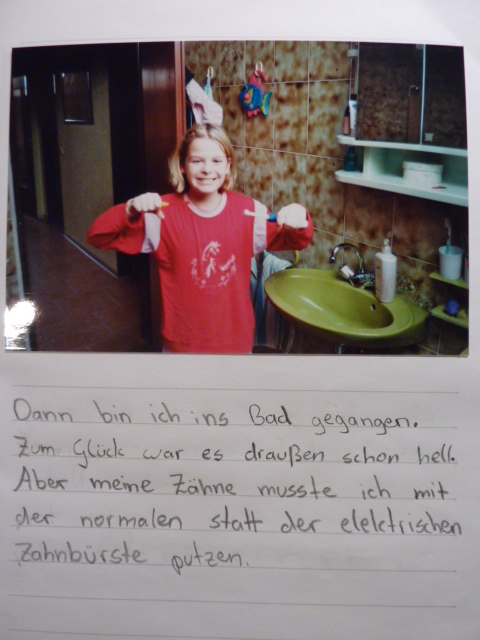 Dann bin ich ins Bad gegangen.
Zum Glück war es draußen schon hell.
Aber meine Zähne musste ich mit
der normalen statt der elektrischen
Zahnbürste putzen.